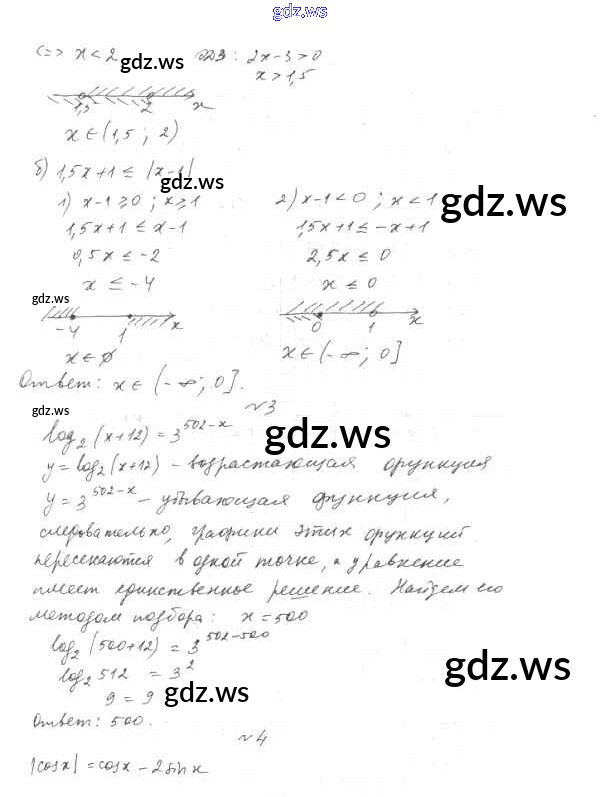 gdz.ws
<=> x < 2 gdz.ws ОДЗ: 2x-3>0
x > 1,5
1,5 2 x
x ∈ (1,5 ; 2)
б) 1,5x+1 ≤ |x-1|
gdz.ws
1) x-1 ≥ 0 ; x ≥ 1 2) x-1 < 0 ; x < 1 gdz.ws
1,5x+1 ≤ x-1 1,5x+1 ≤ -x+1
0,5x ≤ -2 2,5x ≤ 0
x ≤ -4 x ≤ 0
gdz.ws
-4 1 x 0 1 x
x ∈ ∅ x ∈ (-∞; 0]
Ответ: x ∈ (-∞; 0].
gdz.ws №3
log₂(x+12) = 3^(502-x) gdz.ws
y = log₂(x+12) - возрастающая функция
y = 3^(502-x) - убывающая функция,
следовательно, графики этих функций
пересекаются в одной точке, и уравнение
имеет единственное решение. Найдем его
методом подбора: x = 500
log₂(500+12) = 3^(502-500)
log₂ 512 = 3² gdz.ws
9 = 9 gdz.ws
Ответ: 500.
№4
|cosx| = cosx - 2sinx